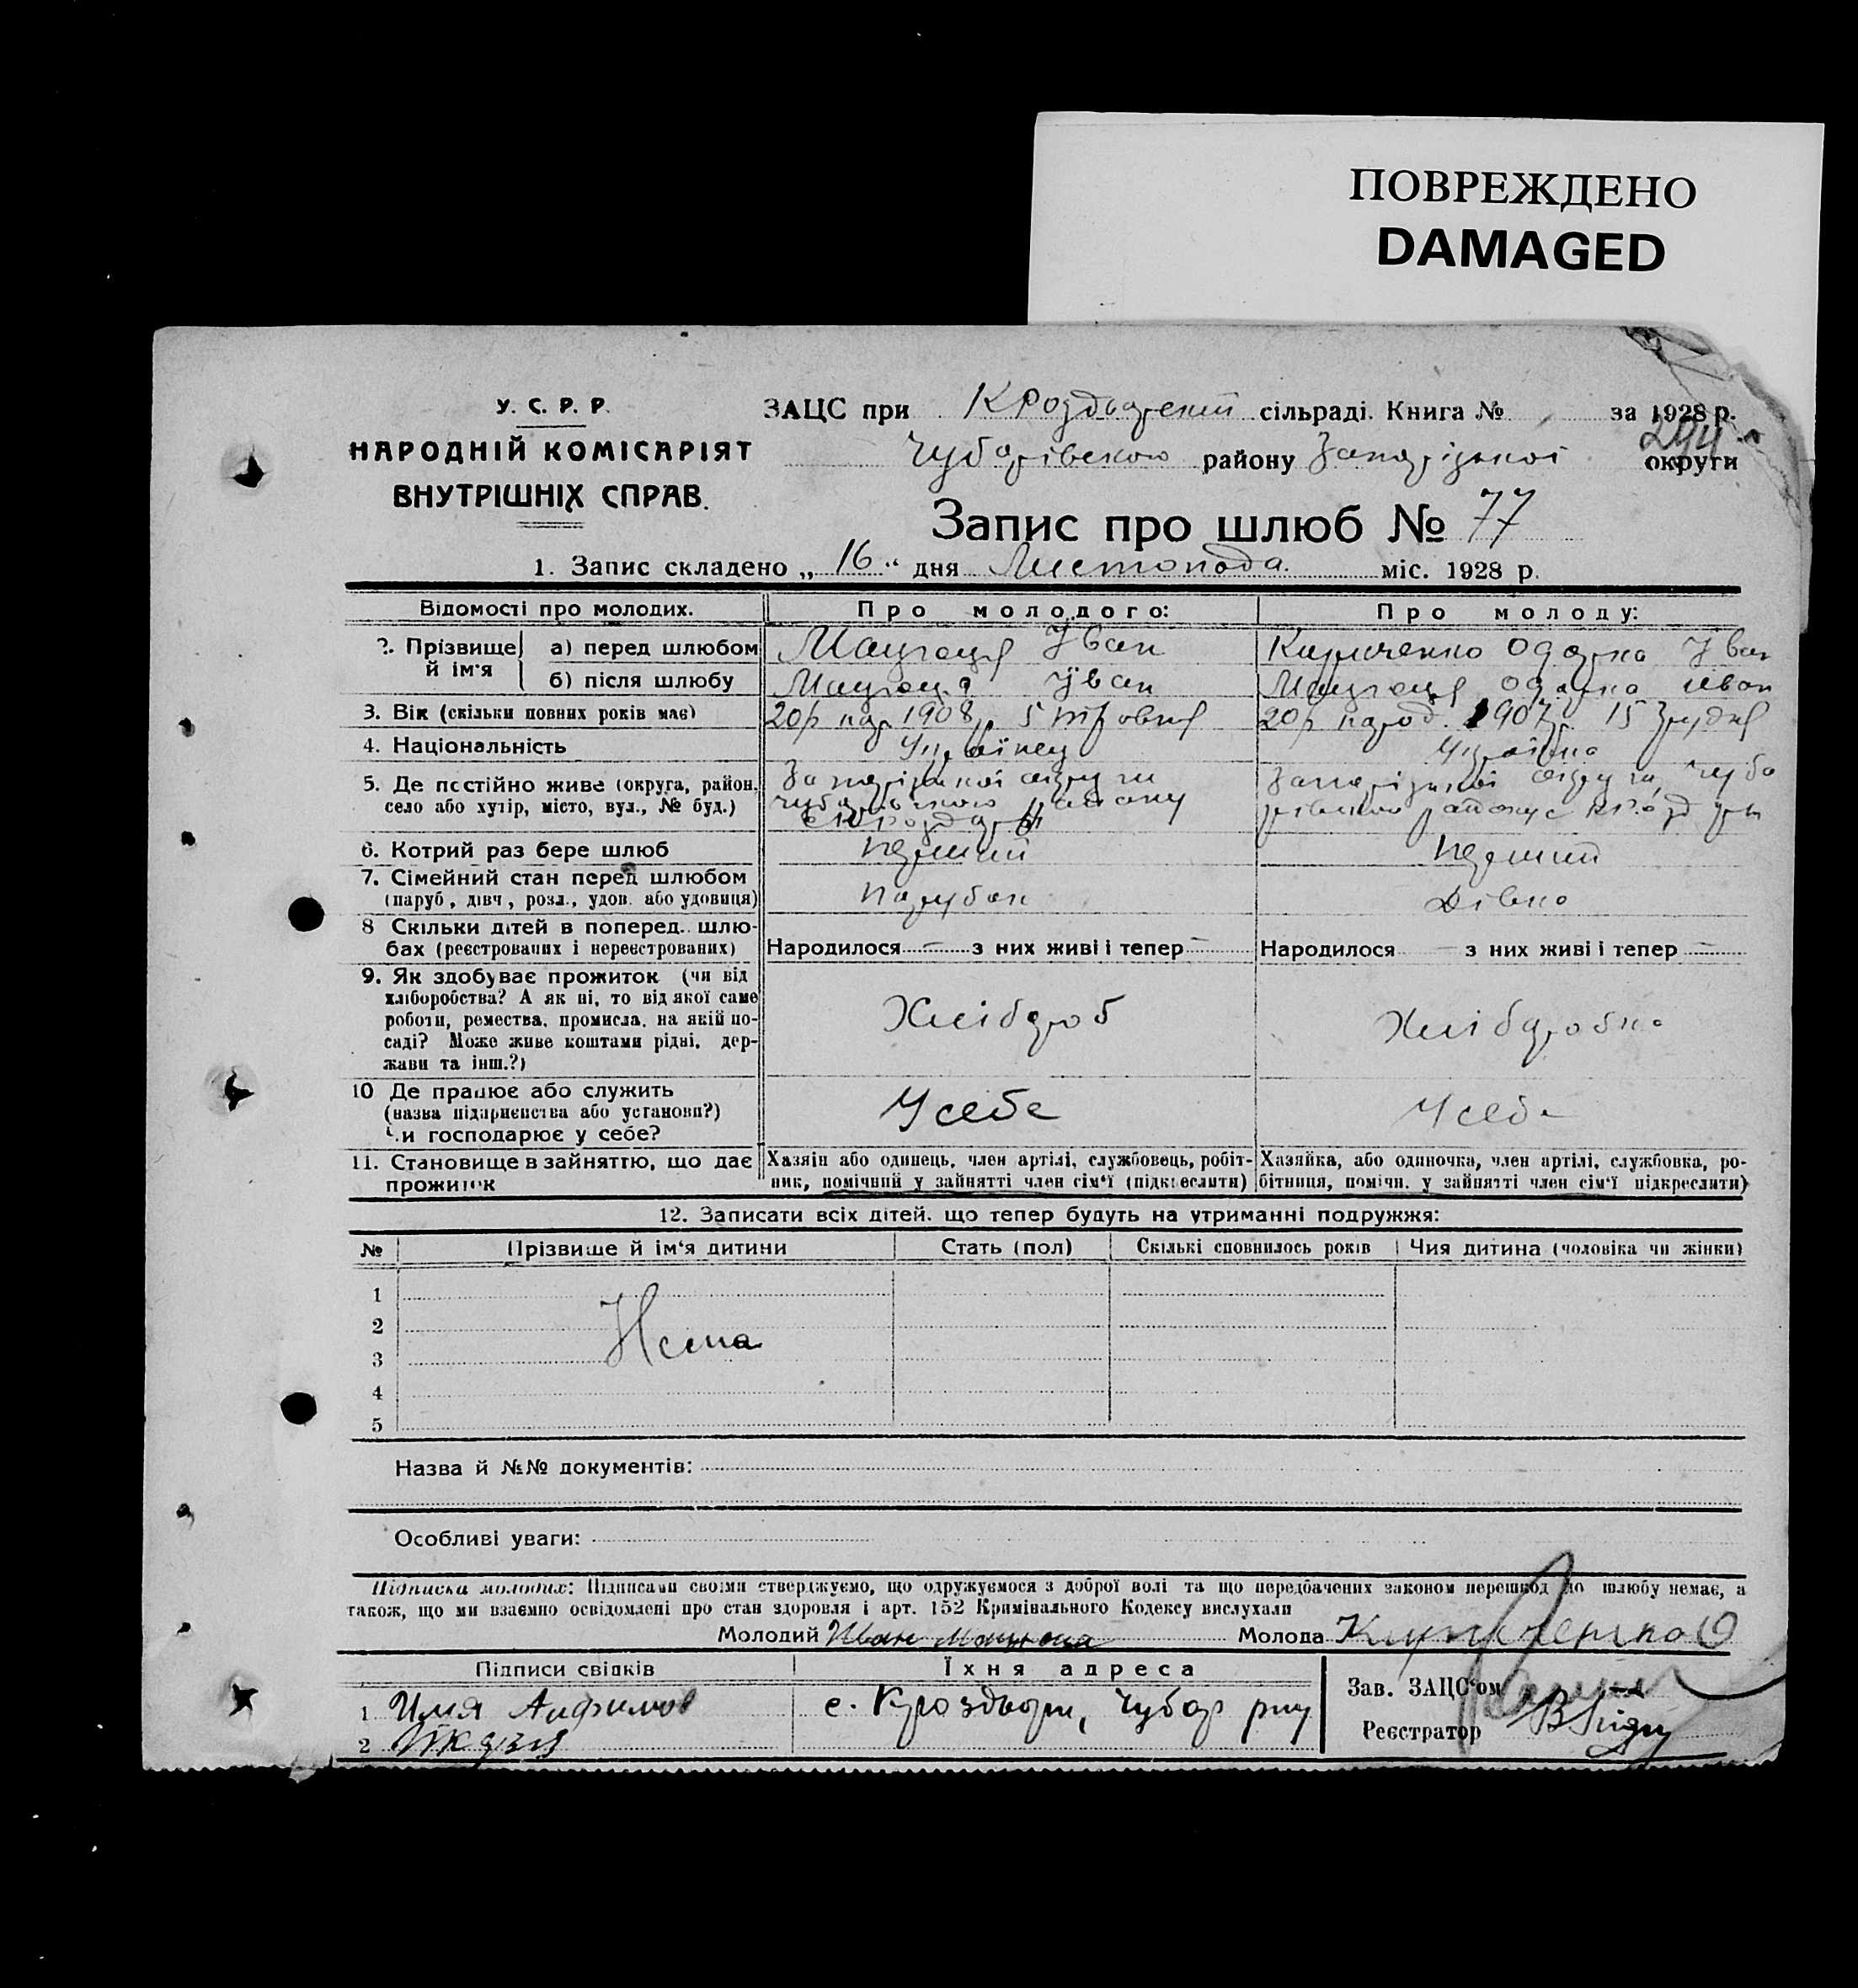 ПОВРЕЖДЕНО
DAMAGED
У. С. Р. Р.
НАРОДНІЙ КОМІСАРІЯТ
ВНУТРІШНІХ СПРАВ.
ЗАЦС при сільраді. Книга № за 1928 р.
Чубарівського району Запорізької округи
Запис про шлюб № 77
1. Запис складено „ 16 “ дня Листопада міс. 1928 р.
Відомості про молодих. Про молодого: Про молоду:
2. Прізвище й ім'я
а) перед шлюбом Іван Кириченко Одарка Іван
б) після шлюбу Іван Одарка Іван
3. Вік (скільки повних років має) 20 р нар. 1908 р. 5 20 р народ. 1907 р. 15 Грудня
4. Національність Українец Українка
5. Де постійно живе (округа, район, село або хутір, місто, вул., № буд.)
Запорізької округи
Чубарівського району
Запорізької округи, Чуба
рівського району с
6. Котрий раз бере шлюб Перший Перший
7. Сімейний стан перед шлюбом
(паруб., дівч., розл., удов. або удовиця) Парубок Дівка
8 Скільки дітей в поперед. шлю-
бах (реєстрованих і нереєстрованих) Народилося — з них живі і тепер — Народилося — з них живі і тепер —
9. Як здобуває прожиток (чи від
хліборобства? А як ні, то від якої саме
роботи, ремества, промисла, на якій по-
саді? Може живе коштами рідні, дер-
жави та інш.?)
Хлібороб Хліборобка
10 Де працює або служить
(назва підприємства або установи?)
Чи господарює у себе?
У себе У себе
11. Становище в зайняттю, що дає
прожиток
Хазяїн або одинець, член артілі, службовець, робіт-
ник, помічний у зайнятті член сім'ї (підкреслити)
Хазяйка, або одиночка, член артілі, службовка, ро-
бітниця, помічн. у зайнятті член сім'ї підкреслити)
12. Записати всіх дітей. що тепер будуть на утриманні подружжя:
№ Прізвище й ім'я дитини Стать (пол) Скількі сповнилось років Чия дитина (чоловіка чи жінки)
1
2
Нема
3
4
5
Назва й №№ документів:
Особливі уваги:
Підписка молодих: Підписами своїми стверджуємо, що одружуємося з доброї волі та що передбачених законом перешкод до шлюбу немає, а
також, що ми взаємно освідомлені про стан здоровля і арт. 152 Кримінального Кодексу вислухали
Молодий Иван Молода Кириченко О
Підписи свідків Їхня адреса
Зав. ЗАЦС'ом
1
2
Реєстратор